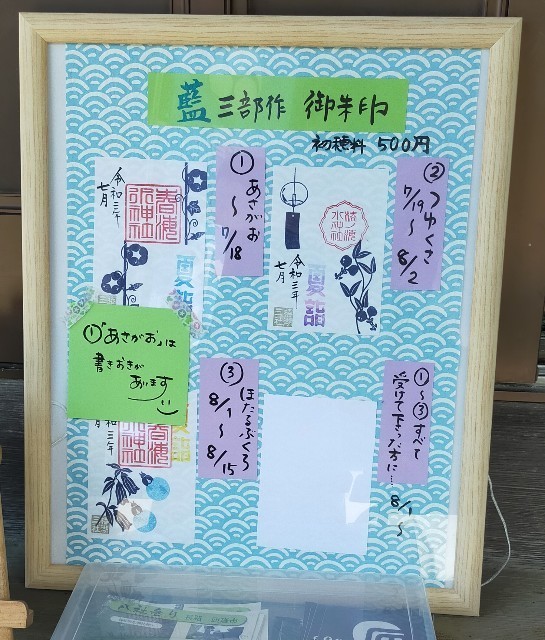 藍 三部作 御朱印
初穂料 500円
①
あさがお
～
7/18
令和三年
七月
夏詣
②
つゆくさ
7/19
～
8/2
令和三年
七月
夏詣
①「あさがお」は
書きおきが
あります
③
ほたるぶくろ
8/1
～
8/15
和三年
①～③すべて
受けて下さった方に…
8/1
～